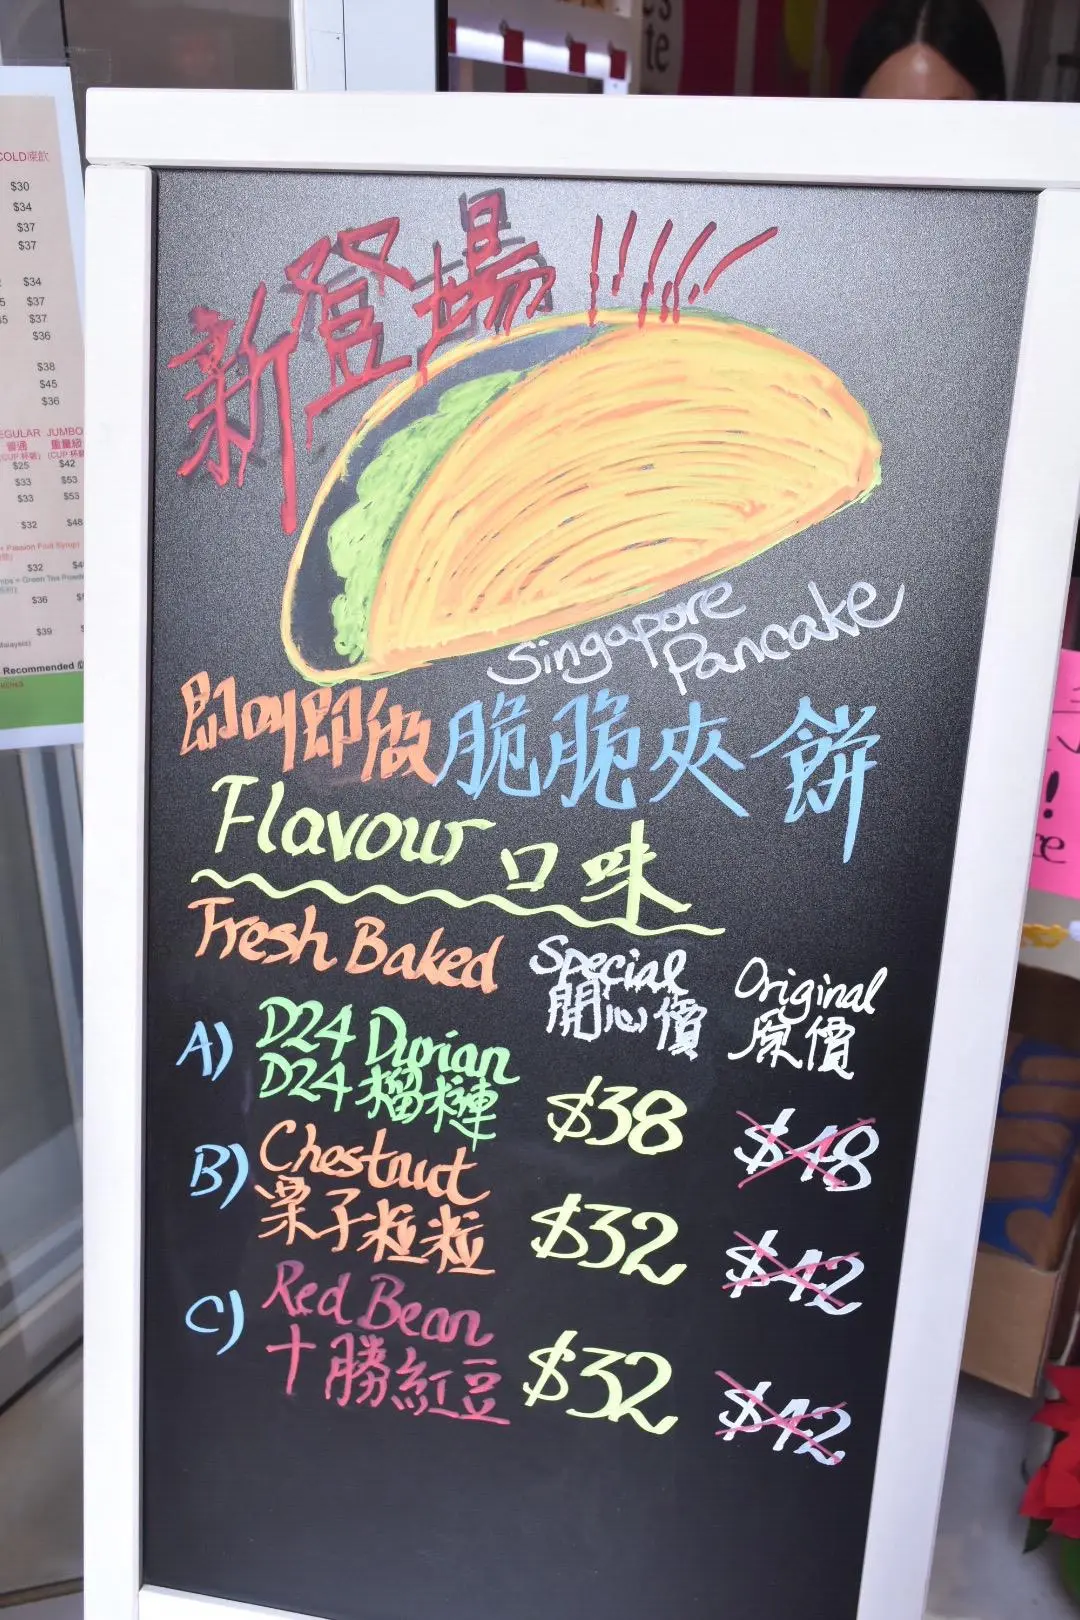 COLD凍飲
$30
$34
$37
$37
$34
$37
$37
$36
$38
$45
$36
REGULAR JUMBO
普通 重量級
(CUP 杯裝) (CUP 杯裝)
$25 $42
$33 $53
$33 $53
$32 $48
+ Passion Fruit Syrup)
$32
= Green Tea Powder
$36
$39
Malaysia)
Recommended
新登場!!!!!
Singapore
Pancake
即叫即做脆脆夾餅
Flavour 口味
Fresh Baked Special Original
開心價 原價
A) D24 Durian
D24 榴槤 $38 $48
B) Chestnut
栗子粒粒 $32 $42
C) Red Bean
十勝紅豆 $32 $42